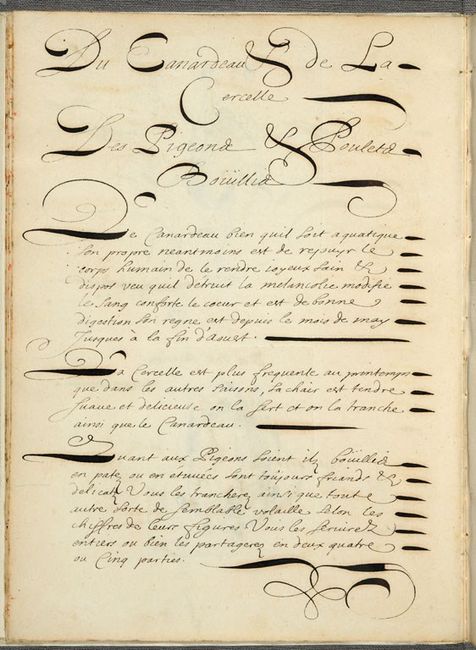 Du Canardeau & de La
Cercelle
Des Pigeons & Poulets
Boüillis
Le Canardeau bien quil soit aquatique
son propre neantmoins est de rejouyr le
corps humain de le rendre joyeux sain &
dispos veu quil détruit la melancolie modifie
le sang conforte le coeur et est de bonne
digestion son regne est depuis le mois de may
Jusques à la fin d'Aoust.
La Cercelle est plus frequente au printemps
que dans les autres saisons, sa chair est tendre
suaue et delicieuse on la sert et on la tranche
ainsi que le Canardeau.
Quant aux Pigeons soient ilz boüillis
en patez ou en étuuées sont toujours friands &
delicatz Vous les trancherez ainsi que toute
autre sorte de semblable volaille selon les
chiffres de leurs figures Vous les seruirez
entiers ou bien les partagerez en deux quatre
ou Cinq parties.